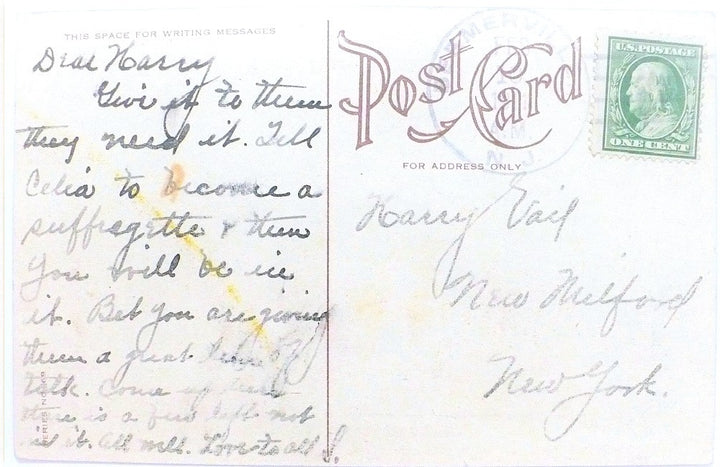 THIS SPACE FOR WRITING MESSAGES
Dear Harry
Give it to them
they need it. Tell
Celia to become a
suffragette & then
you will be in
it. Bet you are giving
them a great
talk. Come up
there is a few left not
in it. All well. Love to all J.
Post Card
FOR ADDRESS ONLY
U.S. POSTAGE
ONE CENT
A.M.
N.J.
Harry Vail
New Milford
New York.